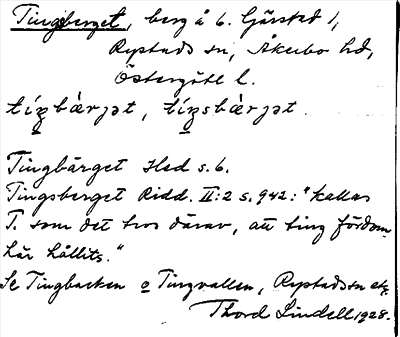 Tingberget, berg å b. Gärstad 1,
Rystads sn, Åkerbo hd,
Östergötl l.
tíŋbàrjət, tíŋsbàrjət.
Tingbärget Hed s. 6.
Tingsberget Ridd. II:2 s. 942: "kallas
T. som det tros därav, att ting fordom
här hållits."
Se Tingbacken o Tingvallen, Rystads sn etc.
Thord Lindell 1928.